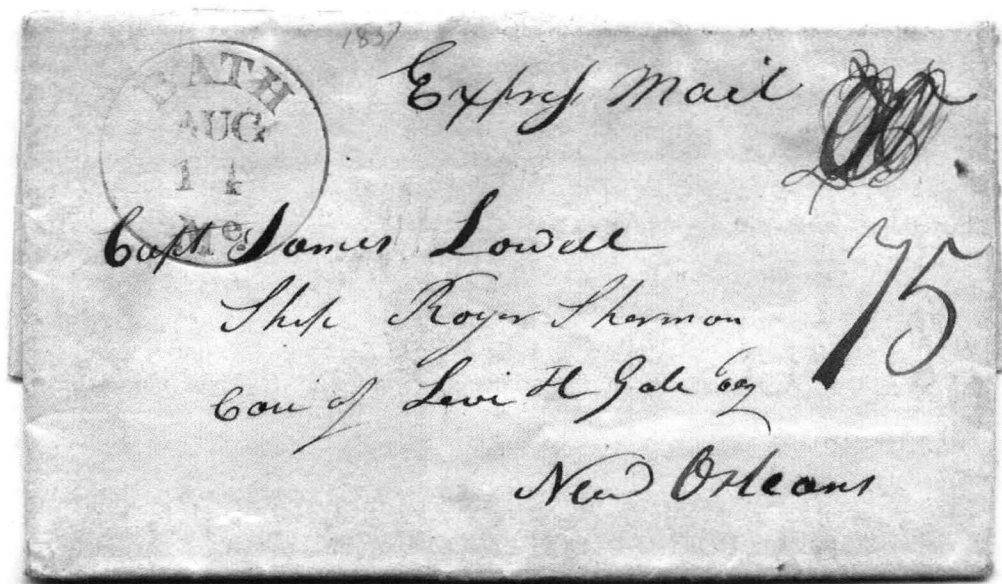 1837
BATH
AUG
14
Me.
Express Mail
75
Capt James Lowell
Ship Roger Sherman
Care of Levi H Gale Esq
New Orleans